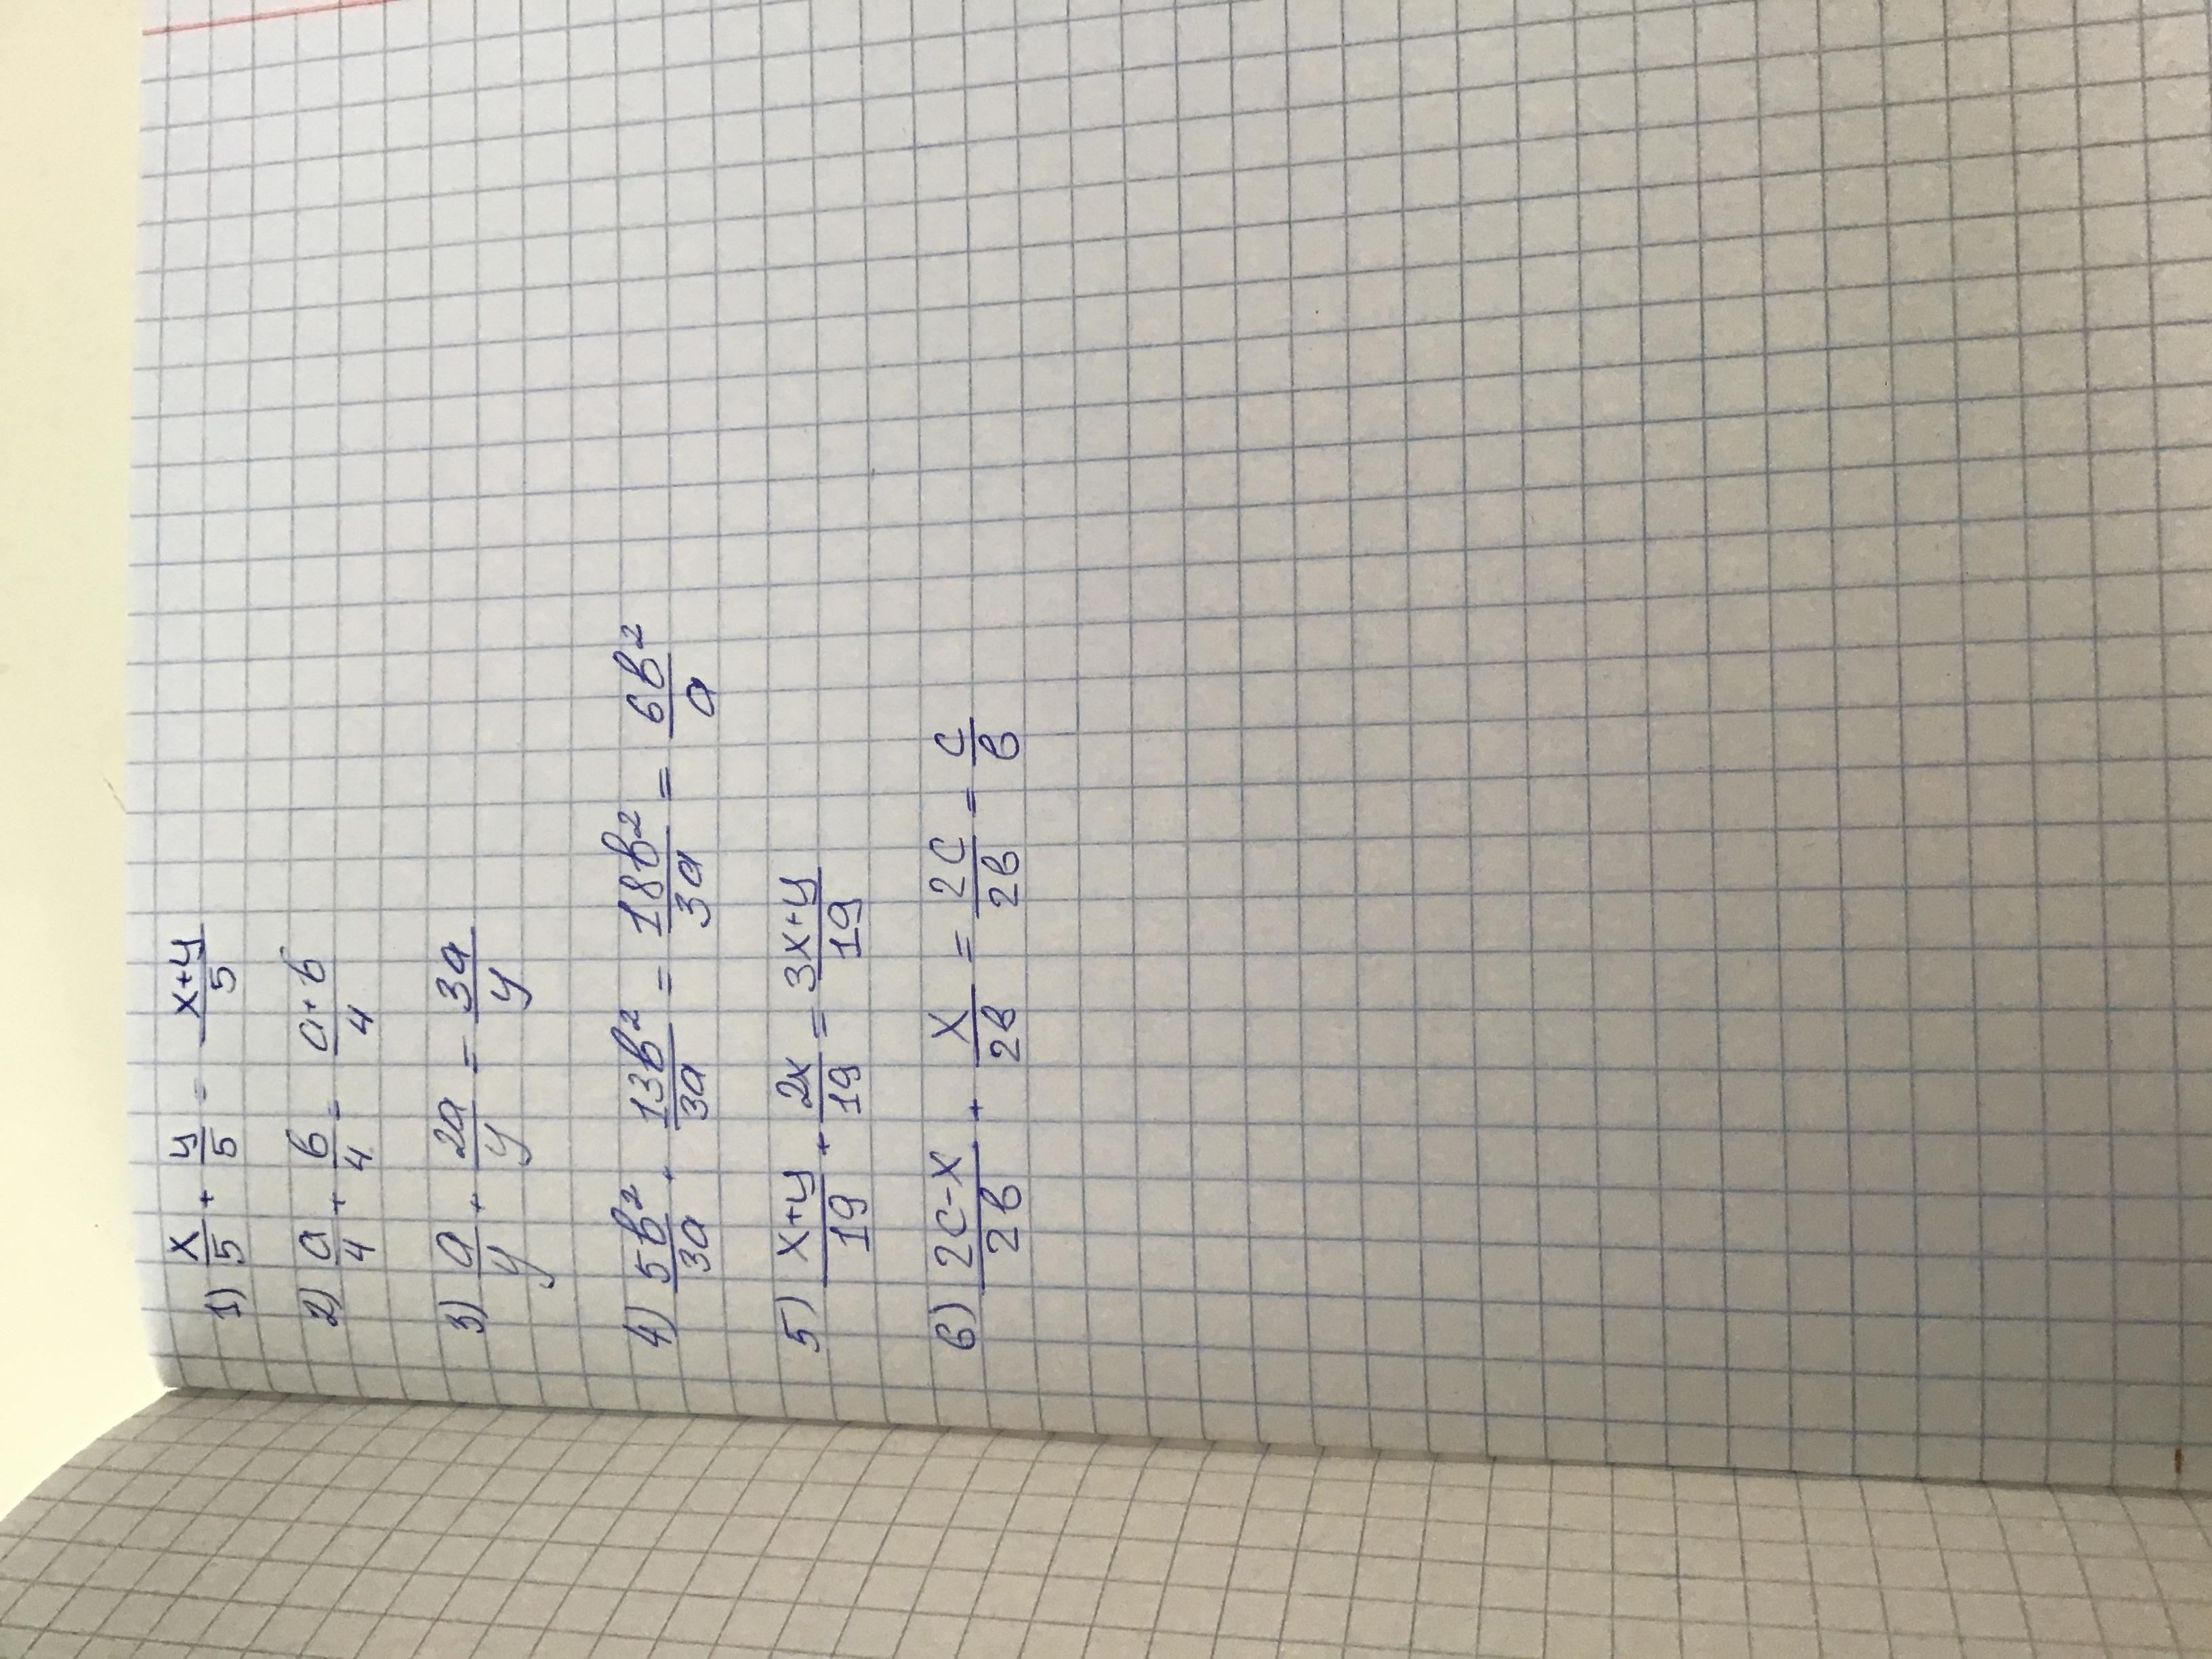 1) x/5 + y/5 = x+y/5
2) a/4 + b/4 = a+b/4
3) a/y + 2a/y = 3a/y
4) 5b²/3a + 13b²/3a = 18b²/3a = 6b²/a
5) x+y/19 + 2x/19 = 3x+y/19
6) 2c-x/2b + x/2b = 2c/2b = c/b